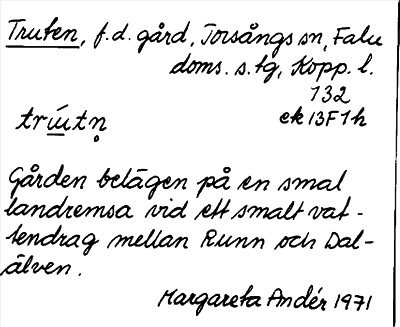 Truten, f.d. gård, Torsångs sn, Falu
doms. s. tg, Kopp. l.
132
ek 13F1h
trɯ́tn̥
Gården belägen på en smal
landremsa vid ett smalt vat-
tendrag mellan Runn och Dal-
älven.
Margareta Andér 1971